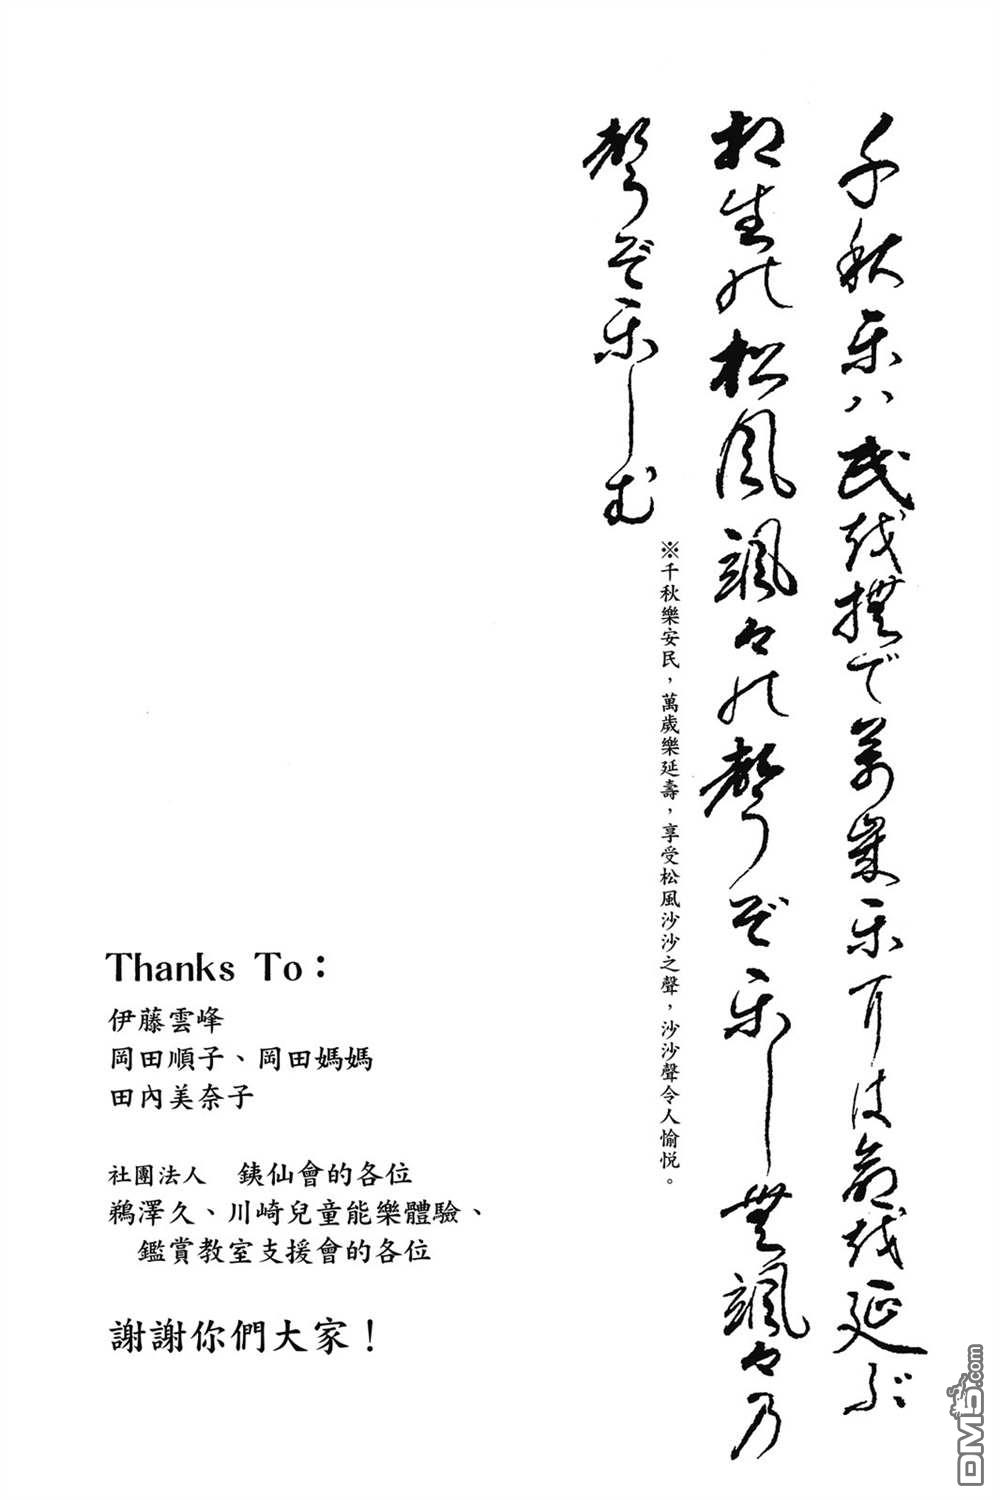 千秋楽ハ民を撫で萬歳楽には命を延ぶ
相生の松風颯々の聲ぞ楽しむ颯々乃
聲ぞ楽しむ
※千秋樂安民，萬歲樂延壽，享受松風沙沙之聲，沙沙聲令人愉悅。
Thanks To：
伊藤雲峰
岡田順子、岡田媽媽
田內美奈子
社團法人　銕仙會的各位
鵜澤久、川崎兒童能樂體驗、
鑑賞教室支援會的各位
謝謝你們大家！
DM5.com